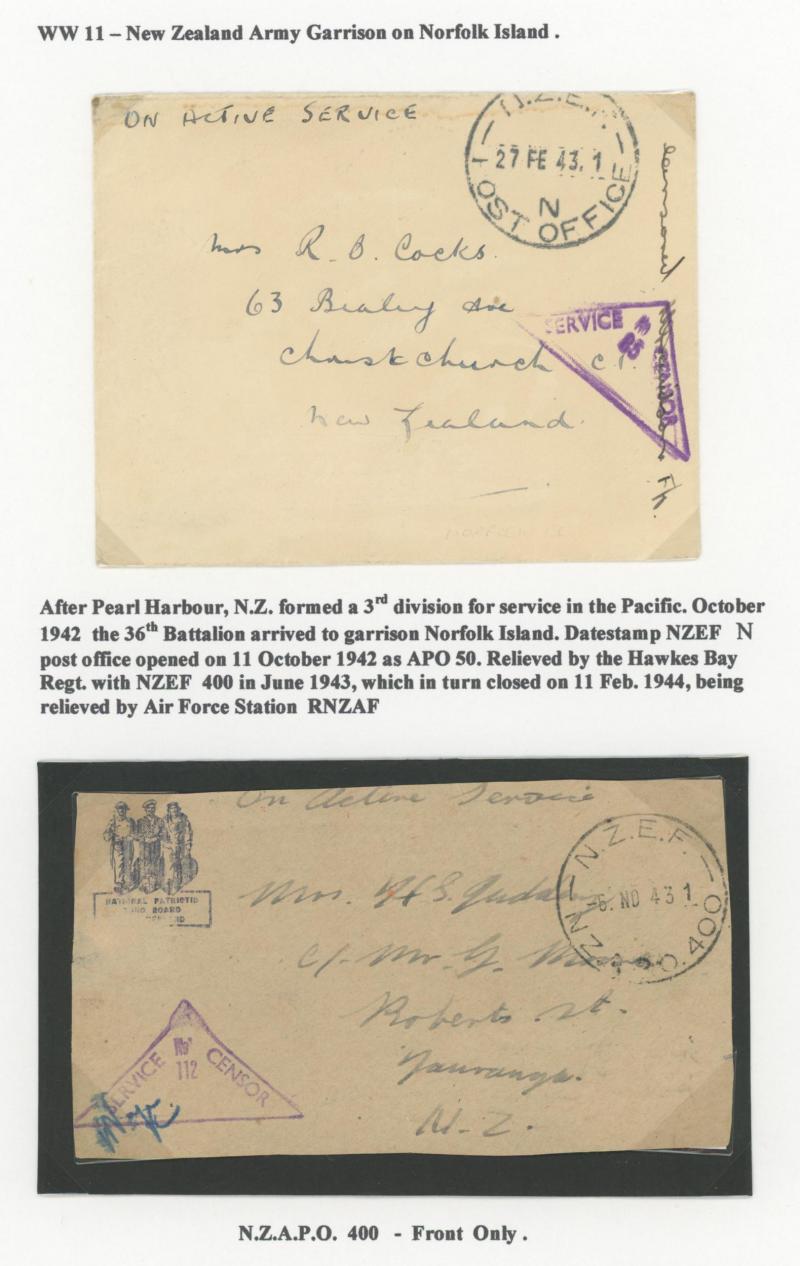 WW 11 – New Zealand Army Garrison on Norfolk Island .
ON ACTIVE SERVICE
N.Z.E.F.
27 FE 43. 1
N
POST OFFICE
Mrs R. B. Cocks.
63 Bealey Ave
Christchurch C1.
New Zealand.
SERVICE CENSOR
After Pearl Harbour, N.Z. formed a 3rd division for service in the Pacific. October
1942 the 36th Battalion arrived to garrison Norfolk Island. Datestamp NZEF N
post office opened on 11 October 1942 as APO 50. Relieved by the Hawkes Bay
Regt. with NZEF 400 in June 1943, which in turn closed on 11 Feb. 1944, being
relieved by Air Force Station RNZAF
On Active Service
NATIONAL PATRIOTIC
FUND BOARD
N.Z.E.F.
6. NO 43 1
400
Mrs.
c/- Mr. G.
Roberts St.
Tauranga.
N.Z.
SERVICE No 112 CENSOR
N.Z.A.P.O. 400 - Front Only .